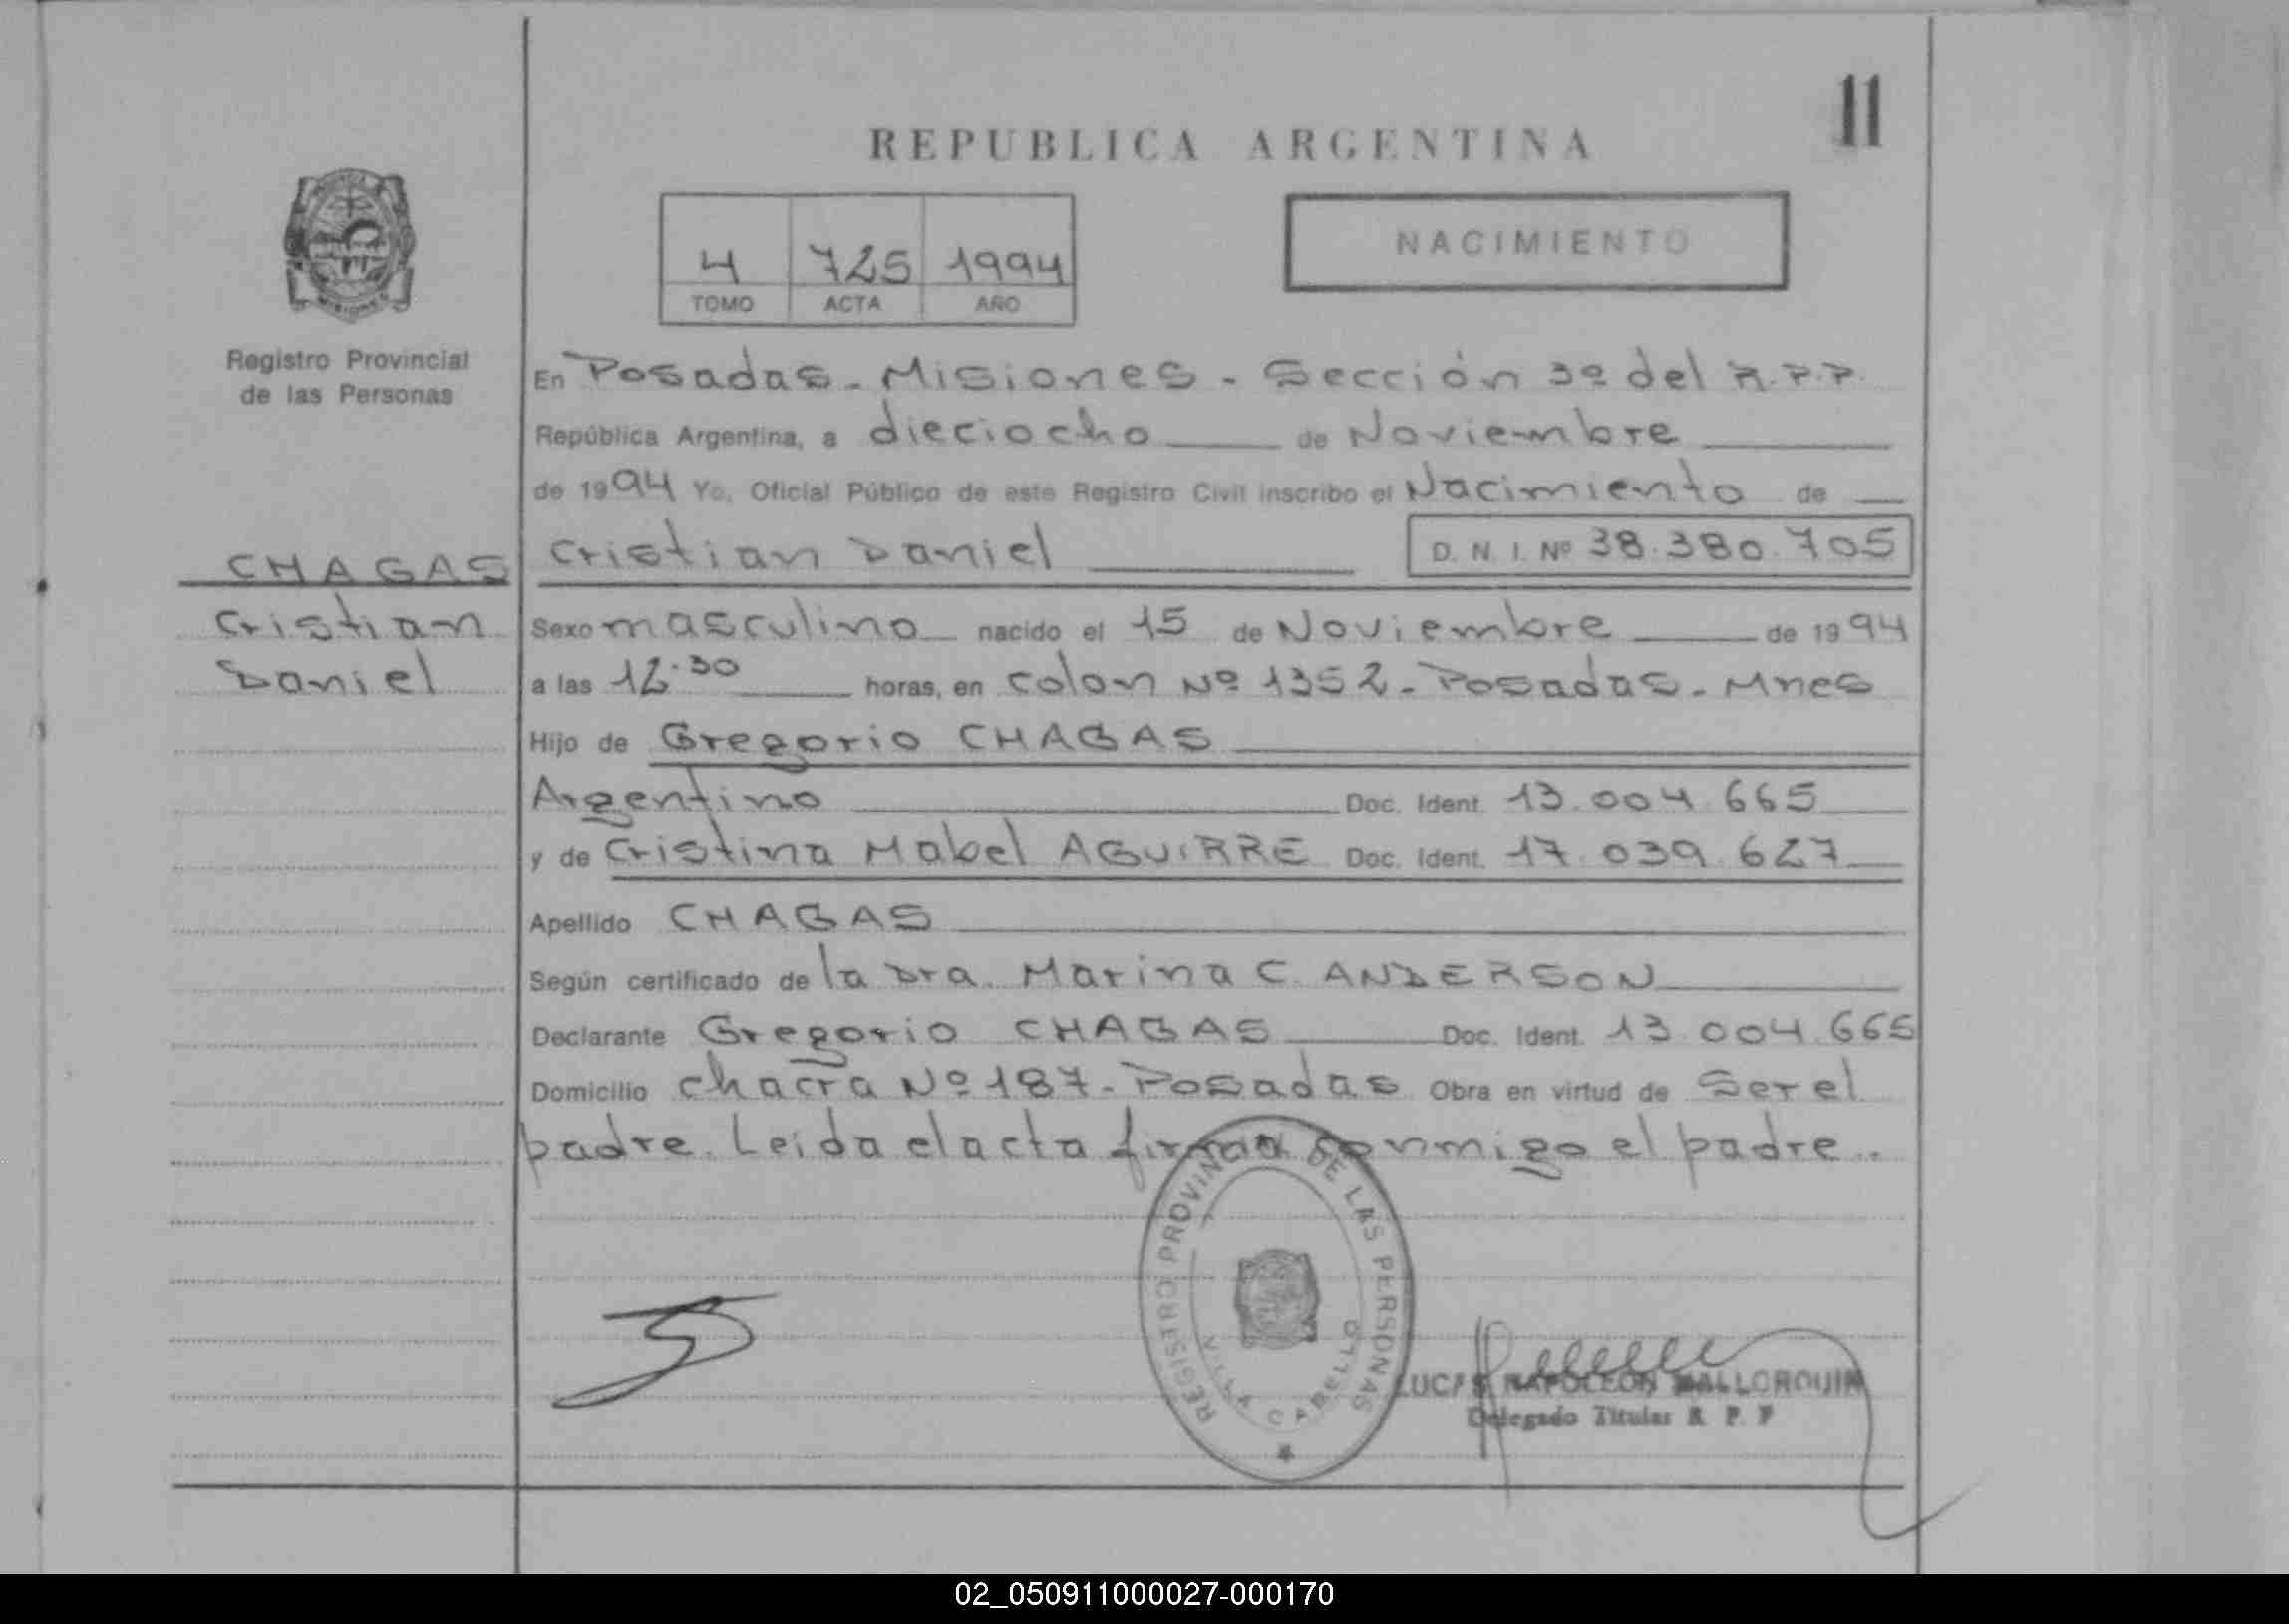 11
REPUBLICA ARGENTINA
NACIMIENTO
4 725 1994
TOMO ACTA AÑO
Registro Provincial
de las Personas
En Posadas - Misiones - Sección 3º del R.P.P.
República Argentina, a dieciocho de Noviembre
de 1994 Yo, Oficial Público de este Registro Civil inscribo el Nacimiento de
CHAGAS
Cristian
Daniel
Cristian Daniel D. N. I. Nº 38.380.705
Sexo masculino nacido el 15 de Noviembre de 1994
a las 12.30 horas, en Colon Nº 1352 - Posadas - Mnes
Hijo de Gregorio CHAGAS
Argentino Doc. Ident. 13.004.665
y de Cristina Mabel AGUIRRE Doc. Ident. 17.039.627
Apellido CHAGAS
Según certificado de la Dra. Marina C. ANDERSON
Declarante Gregorio CHAGAS Doc. Ident. 13.004.665
Domicilio chacra Nº 187 - Posadas Obra en virtud de Ser el
padre. Leida el acta firma conmigo el padre..
REGISTRO PROVINCIAL DE LAS PERSONAS
VILLA CABELLO
LUCAS NAPOLEON MALLORQUIN
Delegado Titular R. P. P
02_050911000027-000170